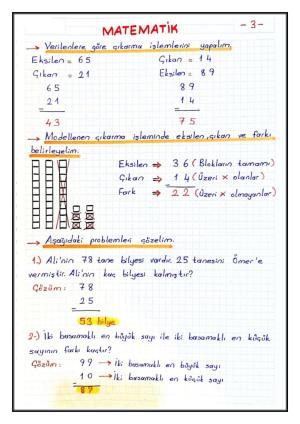 MATEMATİK
- 3 -
→ Verilenlere göre çıkarma işlemlerini yapalım.
Eksilen = 65 Çıkan = 14
Çıkan = 21 Eksilen = 89
65 89
21 14
43 75
→ Modellenen çıkarma işleminde eksilen, çıkan ve farkı
belirleyelim.
Eksilen ⇒ 36 (Blokların tamamı)
Çıkan ⇒ 14 (Üzeri x olanlar)
Fark ⇒ 22 (Üzeri x olmayanlar)
→ Aşağıdaki problemleri çözelim.
1.) Ali'nin 78 tane bilyesi vardır. 25 tanesini Ömer'e
vermiştir. Ali'nin kaç bilyesi kalmıştır?
Çözüm: 78
25
53 bilye
2-) İki basamaklı en büyük sayı ile iki basamaklı en küçük
sayının farkı kaçtır?
Çözüm: 99 → İki basamaklı en büyük sayı
10 → İki basamaklı en küçük sayı
89